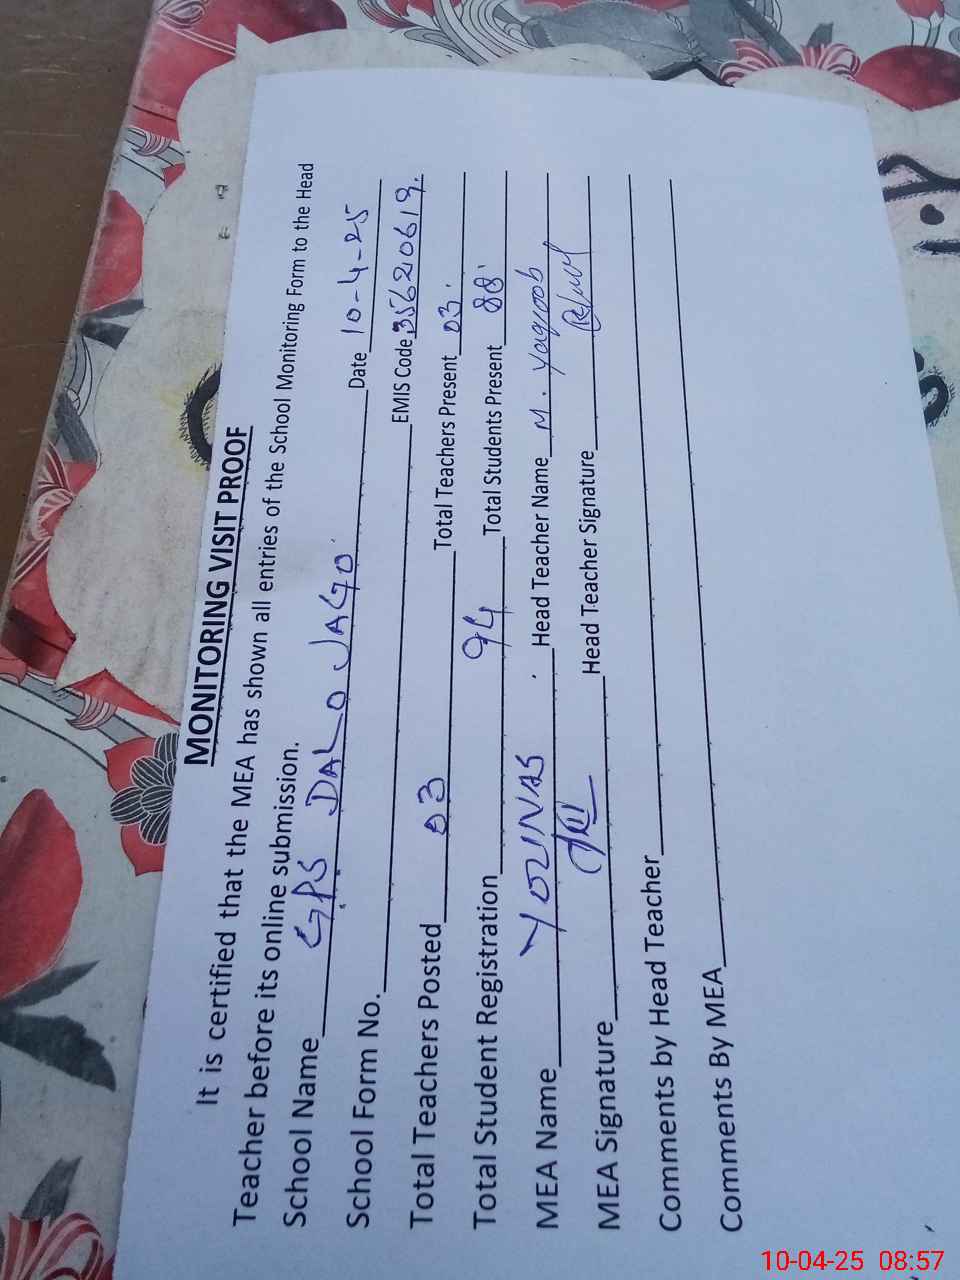 MONITORING VISIT PROOF
It is certified that the MEA has shown all entries of the School Monitoring Form to the Head
Teacher before its online submission.
School Name GPS DALO JAGO Date 10-4-25
School Form No. EMIS Code 35620619.
Total Teachers Posted 03 Total Teachers Present 03.
Total Student Registration 94 Total Students Present 88
MEA Name YOUNAS Head Teacher Name M. Yaqoob
MEA Signature Head Teacher Signature
Comments by Head Teacher
Comments By MEA
10-04-25 08:57